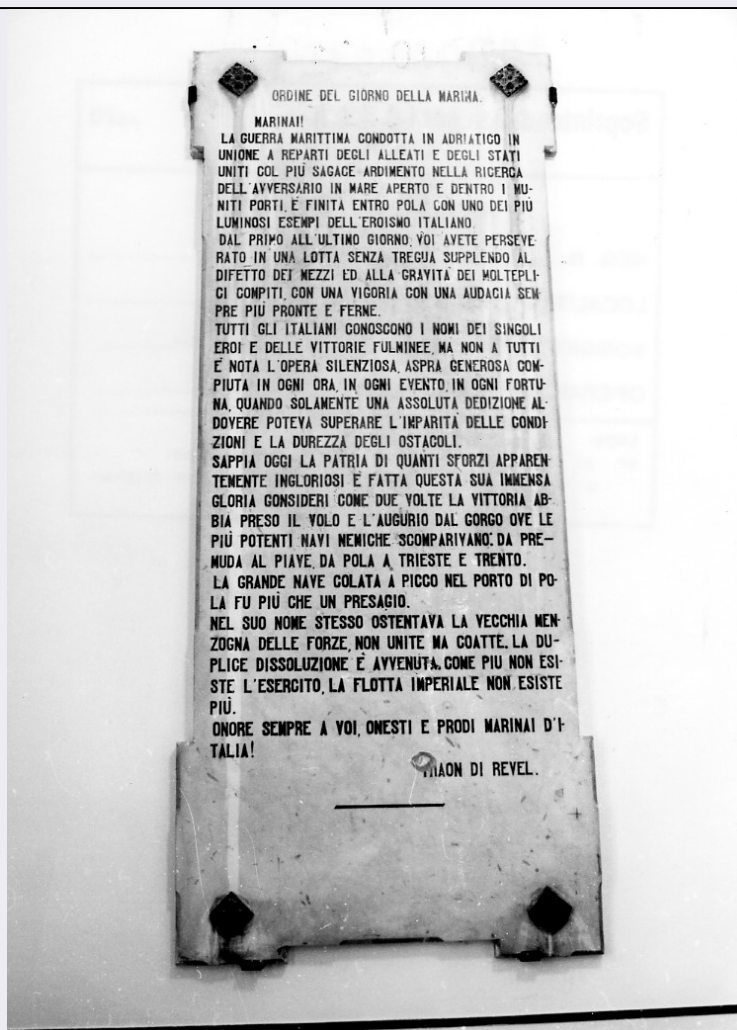 ORDINE DEL GIORNO DELLA MARINA.
MARINAI!
LA GUERRA MARITTIMA CONDOTTA IN ADRIATICO IN
UNIONE A REPARTI DEGLI ALLEATI E DEGLI STATI
UNITI COL PIÙ SAGACE ARDIMENTO NELLA RICERCA
DELL'AVVERSARIO IN MARE APERTO E DENTRO I MU-
NITI PORTI, È FINITA ENTRO POLA CON UNO DEI PIÙ
LUMINOSI ESEMPI DELL'EROISMO ITALIANO.
DAL PRIMO ALL'ULTIMO GIORNO, VOI AVETE PERSEVE-
RATO IN UNA LOTTA SENZA TREGUA SUPPLENDO AL
DIFETTO DEI MEZZI ED ALLA GRAVITÀ DEI MOLTEPLI-
CI COMPITI, CON UNA VIGORIA CON UNA AUDACIA SEM-
PRE PIÙ PRONTE E FERME.
TUTTI GLI ITALIANI CONOSCONO I NOMI DEI SINGOLI
EROI E DELLE VITTORIE FULMINEE, MA NON A TUTTI
È NOTA L'OPERA SILENZIOSA, ASPRA GENEROSA COM-
PIUTA IN OGNI ORA, IN OGNI EVENTO, IN OGNI FORTU-
NA, QUANDO SOLAMENTE UNA ASSOLUTA DEDIZIONE AL-
DOVERE POTEVA SUPERARE L'IMPARITÀ DELLE CONDI-
ZIONI E LA DUREZZA DEGLI OSTACOLI.
SAPPIA OGGI LA PATRIA DI QUANTI SFORZI APPAREN-
TEMENTE INGLORIOSI È FATTA QUESTA SUA IMMENSA
GLORIA CONSIDERI COME DUE VOLTE LA VITTORIA AB-
BIA PRESO IL VOLO E L'AUGURIO DAL GORGO OVE LE
PIÙ POTENTI NAVI NEMICHE SCOMPARIVANO: DA PRE-
MUDA AL PIAVE, DA POLA A TRIESTE E TRENTO.
LA GRANDE NAVE COLATA A PICCO NEL PORTO DI PO-
LA FU PIÙ CHE UN PRESAGIO.
NEL SUO NOME STESSO OSTENTAVA LA VECCHIA MEN-
ZOGNA DELLE FORZE, NON UNITE MA COATTE. LA DU-
PLICE DISSOLUZIONE È AVVENUTA. COME PIÙ NON ESI-
STE L'ESERCITO, LA FLOTTA IMPERIALE NON ESISTE
PIÙ.
ONORE SEMPRE A VOI, ONESTI E PRODI MARINAI D'I-
TALIA!
THAON DI REVEL.